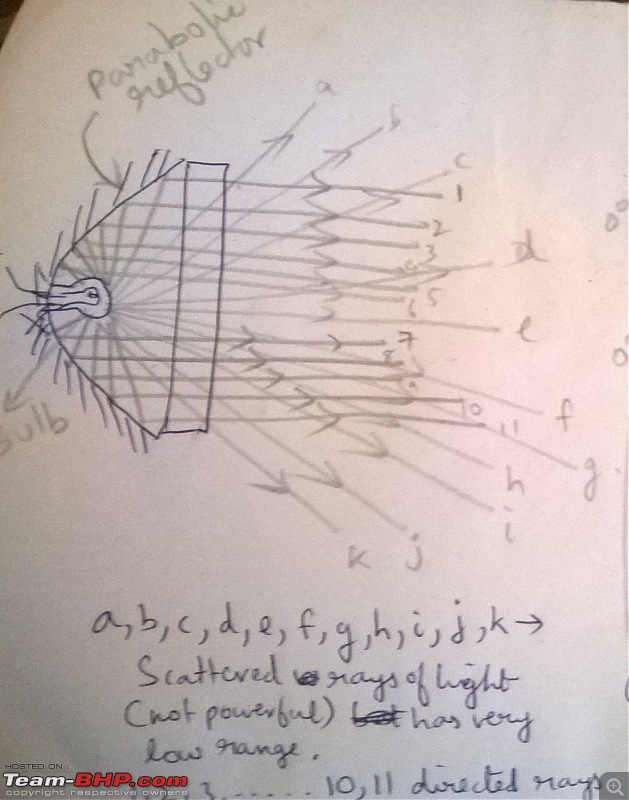 parabolic
reflector
a
b
c
1
2
3
d
4
5
6
e
7
8
9
10
11
f
g
h
i
j
k
bulb
a, b, c, d, e, f, g, h, i, j, k →
Scattered rays of light
(not powerful) has very
low range.
3 ...... 10, 11 directed rays
HOSTED ON :
Team-BHP.com
copyright respective owners